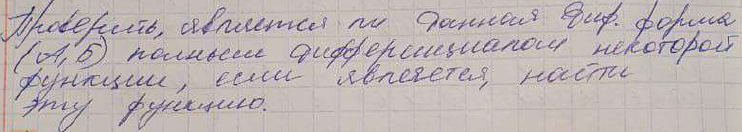 Проверить, является ли данная диф. форма
(А, Б) полным дифференциалом некоторой
функции, если является, найти
эту функцию.